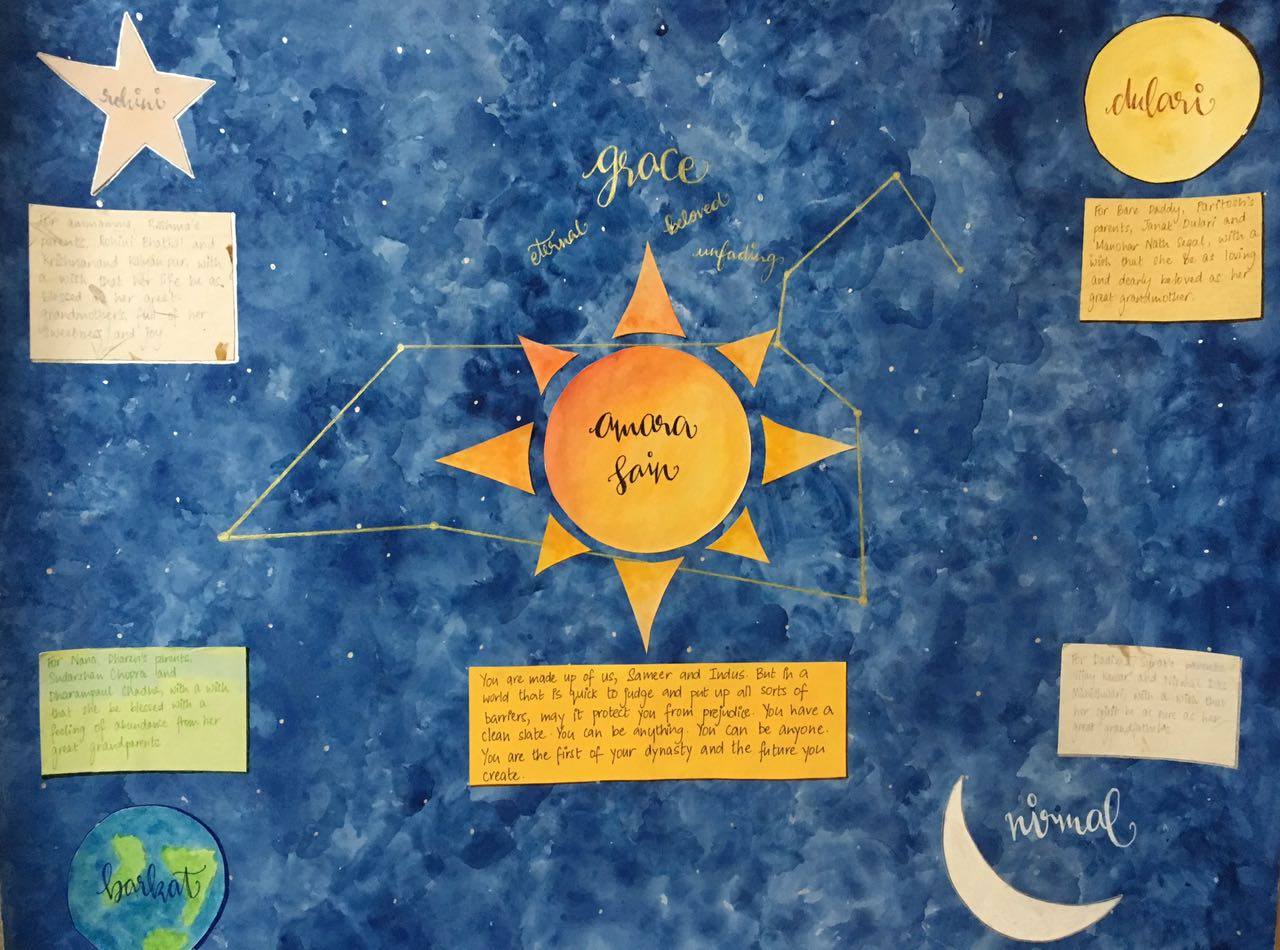 rohini
For ammamma, Reshma's
parents, Rohini Bhatkal and
Krishnanand Kalyanpur, with
a wish that her life be as
blessed as her great
grandmother's, full of her
sweetness and joy
grace
eternal
beloved
unfading
dulari
For Bare Daddy, Paritosh's
parents, Janak Dulari and
Manohar Nath Segal, with a
wish that she be as loving
and dearly beloved as her
great grandmother.
amara
sain
For Nana, Dharen's parents,
Sudarshan Chopra and
Dharampaul Chadha, with a wish
that she be blessed with a
feeling of abundance from her
great grandparents
barkat
You are made up of us, Sameer and Indus. But in a
world that is quick to judge and put up all sorts of
barriers, may it protect you from prejudice. You have a
clean slate. You can be anything. You can be anyone.
You are the first of your dynasty and the future you
create.
For Dadiva,
and Nirmal
with a wish that
her spirit be as pure as her
great grandfather's
nirmal